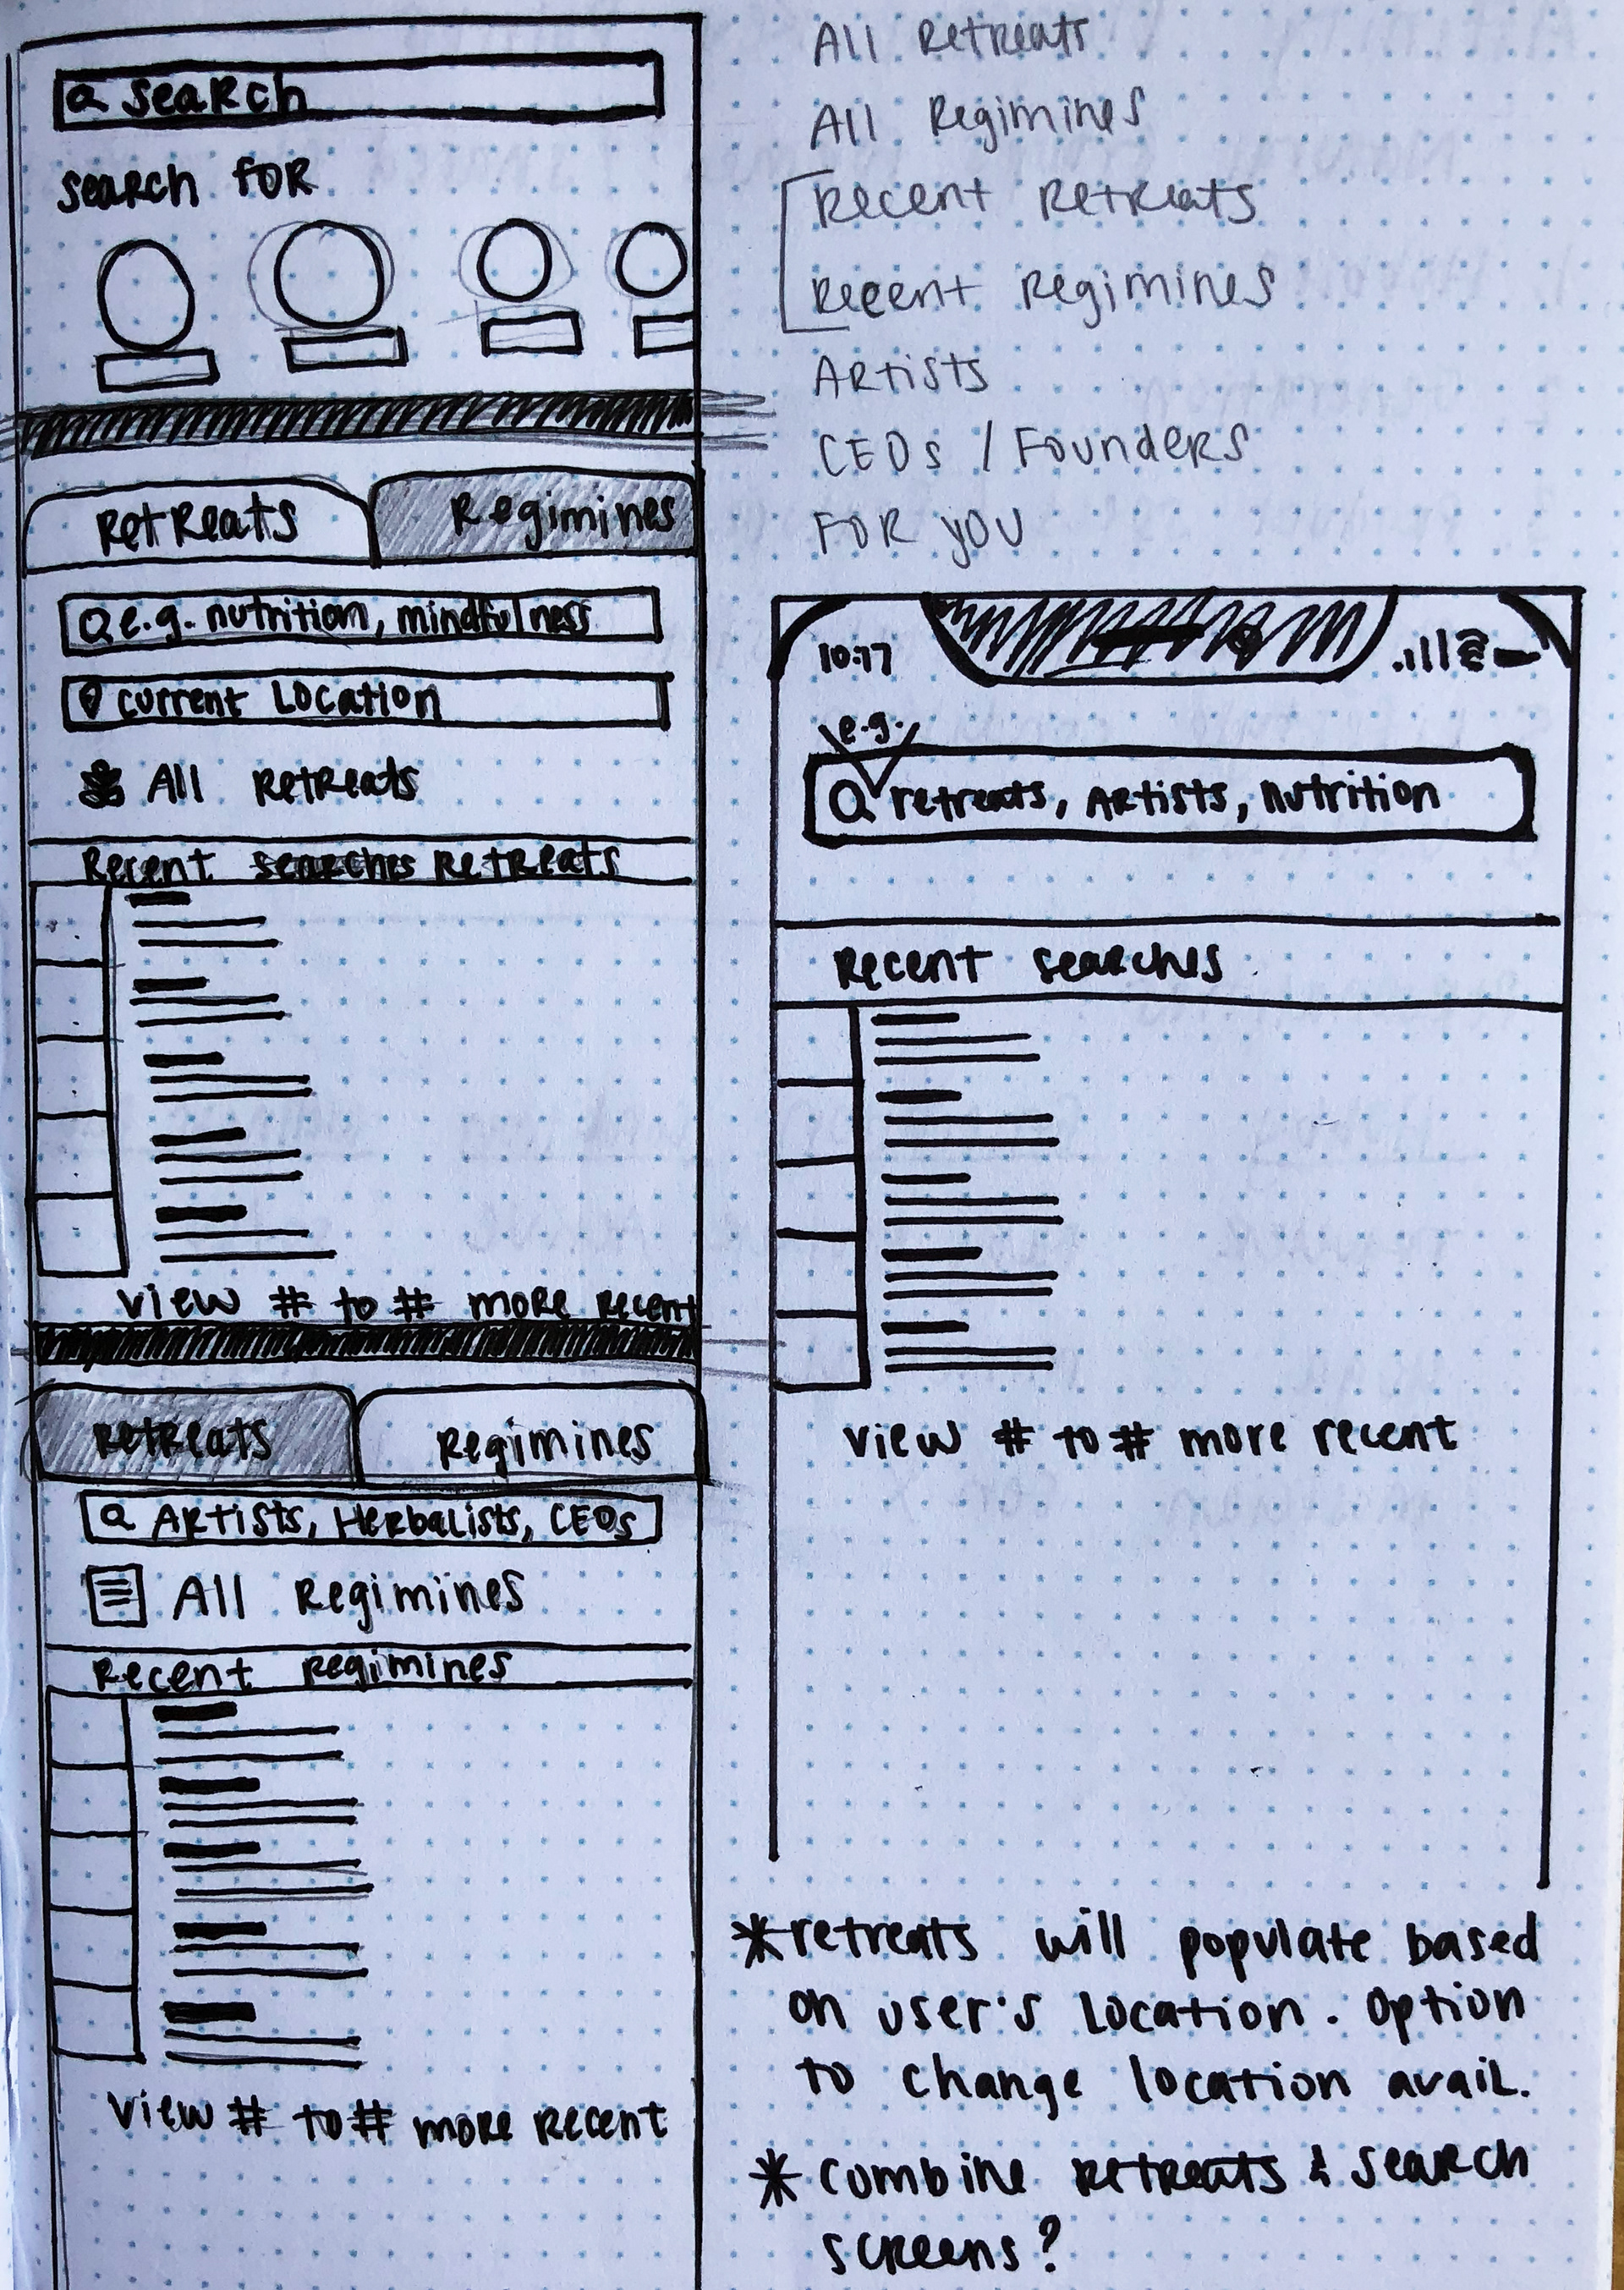 Search
Search For
Retreats
Regimines
e.g. nutrition, mindfulness
Current Location
All Retreats
Recent searches Retreats
View # to # more recent
Retreats
Regimines
Artists, Herbalists, CEOs
All Regimines
Recent Regimines
View # to # more recent
All Retreats
All Regimines
Recent Retreats
Recent Regimines
Artists
CEOs / Founders
For you
10:17
e.g.
retreats, Artists, nutrition
Recent searches
View # to # more recent
*retreats will populate based
on user's location. Option
to change location avail.
* combine retreats & search
screens?